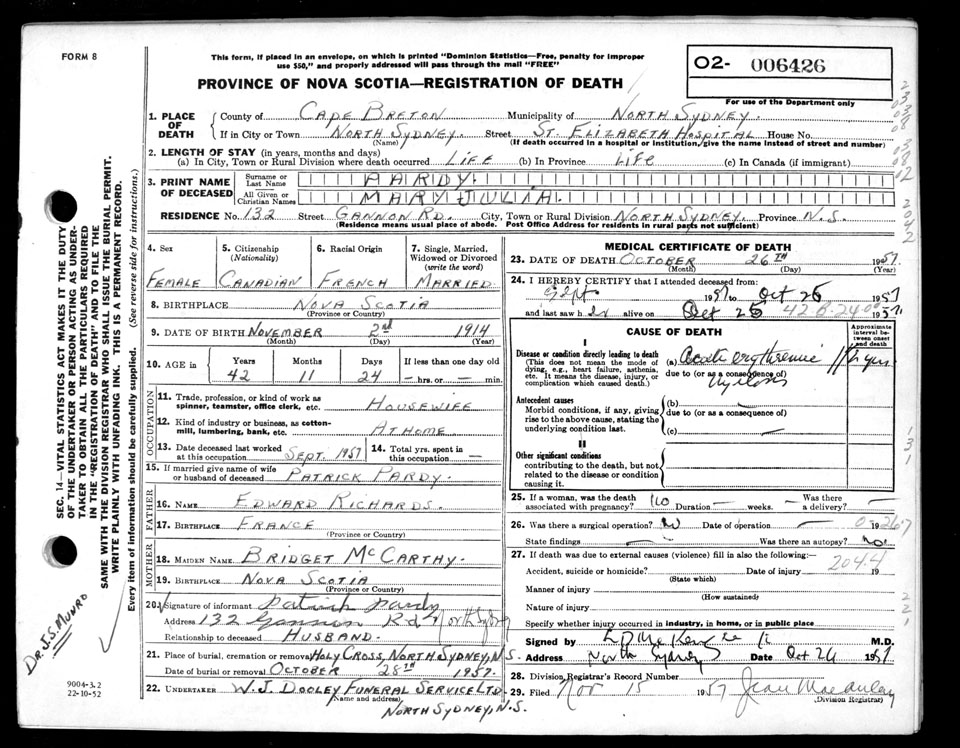 FORM 8
This form, if placed in an envelope, on which is printed "Dominion Statistics—Free, penalty for improper
use $50," and properly addressed will pass through the mail "FREE"
PROVINCE OF NOVA SCOTIA—REGISTRATION OF DEATH
O2- 006426
For use of the Department only
1. PLACE OF DEATH County of CAPE BRETON Municipality of NORTH SYDNEY.
If in City or Town NORTH SYDNEY. Street ST. ELIZABETH HOSPITAL House No.
(Name) (If death occurred in a hospital or institution, give the name instead of street and number)
2. LENGTH OF STAY (in years, months and days)
(a) In City, Town or Rural Division where death occurred LIFE (b) In Province LIFE (c) In Canada (if immigrant)
3. PRINT NAME OF DECEASED Surname or Last Name PARDY.
All Given or Christian Names MARY JULIA.
RESIDENCE No. 132 Street GANNON RD. City, Town or Rural Division NORTH SYDNEY. Province N.S.
(Residence means usual place of abode. Post Office Address for residents in rural parts not sufficient)
4. Sex FEMALE
5. Citizenship (Nationality) CANADIAN
6. Racial Origin FRENCH
7. Single, Married, Widowed or Divorced (write the word) MARRIED
8. BIRTHPLACE NOVA SCOTIA
(Province or Country)
9. DATE OF BIRTH NOVEMBER 2nd 1914
(Month) (Day) (Year)
10. AGE in Years 42 Months 11 Days 24 If less than one day old — hrs. or — min.
OCCUPATION
11. Trade, profession, or kind of work as spinner, teamster, office clerk, etc. HOUSEWIFE
12. Kind of industry or business, as cotton-mill, lumbering, bank, etc. AT HOME
13. Date deceased last worked at this occupation SEPT. 1957 14. Total yrs. spent in this occupation —
15. If married give name of wife or husband of deceased PATRICK PARDY.
FATHER
16. NAME EDWARD RICHARDS.
17. BIRTHPLACE FRANCE
(Province or Country)
MOTHER
18. MAIDEN NAME BRIDGET McCARTHY.
19. BIRTHPLACE NOVA SCOTIA
(Province or Country)
20. Signature of informant Patrick Pardy
Address 132 Gannon Rd North Sydney
Relationship to deceased HUSBAND.
21. Place of burial, cremation or removal HOLY CROSS, NORTH SYDNEY, N.S.
Date of burial or removal OCTOBER 28th 1957.
22. UNDERTAKER W. J. DOOLEY FUNERAL SERVICE LTD.
(Name and address)
NORTH SYDNEY, N.S.
MEDICAL CERTIFICATE OF DEATH
23. DATE OF DEATH OCTOBER 26TH 1957.
(Month) (Day) (Year)
24. I HEREBY CERTIFY that I attended deceased from:
Sept 1957 to Oct 26 1957
and last saw her alive on Oct 25 1957
CAUSE OF DEATH
Approximate interval between onset and death
I
Disease or condition directly leading to death
(This does not mean the mode of dying, e.g., heart failure, asthenia, etc. It means the disease, injury, or complication which caused death.)
(a)
due to (or as a consequence of)
Antecedent causes
Morbid conditions, if any, giving rise to the above cause, stating the underlying condition last.
(b) —
due to (or as a consequence of)
(c) —
II
Other significant conditions
contributing to the death, but not related to the disease or condition causing it.
25. If a woman, was the death associated with pregnancy? No Duration — weeks. Was there a delivery? —
26. Was there a surgical operation? No Date of operation — 19
State findings — Was there an autopsy? No
27. If death was due to external causes (violence) fill in also the following:—
Accident, suicide or homicide? Date of injury 19
(State which)
204.4
Manner of injury
(How sustained)
Nature of injury
Specify whether injury occurred in industry, in home, or in public place
Signed by M.D.
Address North Sydney Date Oct 26 1957
28. Division Registrar's Record Number
29. Filed Nov 15 1957 Jean Macaulay
(Division Registrar)
SEC. 14—VITAL STATISTICS ACT MAKES IT THE DUTY
OF THE UNDERTAKER OR PERSON ACTING AS UNDER-
TAKER TO OBTAIN ALL THE PARTICULARS REQUIRED
IN THE "REGISTRATION OF DEATH" AND TO FILE THE
SAME WITH THE DIVISION REGISTRAR WHO SHALL ISSUE THE BURIAL PERMIT.
WRITE PLAINLY WITH UNFADING INK. THIS IS A PERMANENT RECORD.
Every item of information should be carefully supplied. (See reverse side for instructions.)
DR. J. S. MUNRO
9004-3.2
22-10-52